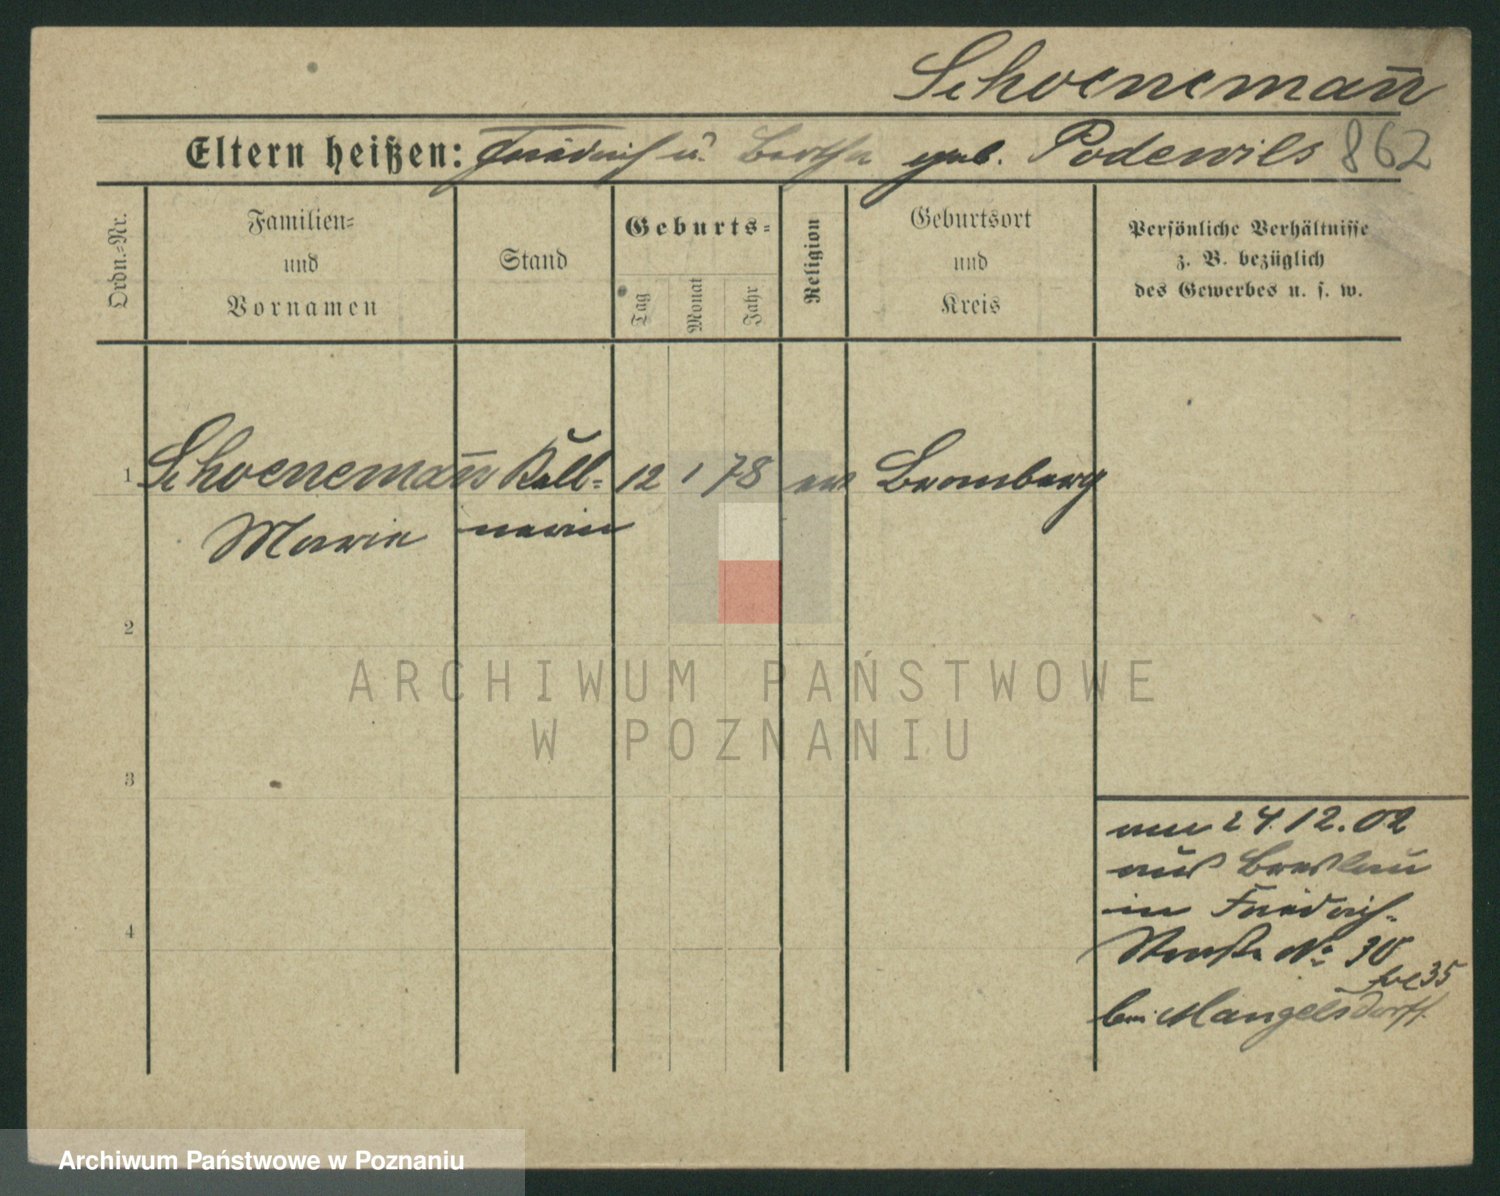 Schoenemann̄
Eltern heißen: Friedrich u. Bertha geb. Podewils 862
Ordn.-Nr.
Familien-
und
Vornamen
Stand
Geburts-
Tag
Monat
Jahr
Religion
Geburtsort
und
Kreis
Persönliche Verhältnisse
z. B. bezüglich
des Gewerbes u. s. w.
1 Schoeneman̄ Kell- 12 1 78 ev Bromberg
Marie nerin
2
ARCHIWUM PAŃSTWOWE
W POZNANIU
3
am 24.12.02
aus Breslau
in Friedrich-
4
Straße No 30
35
bei Mangelsdorff.
Archiwum Państwowe w Poznaniu